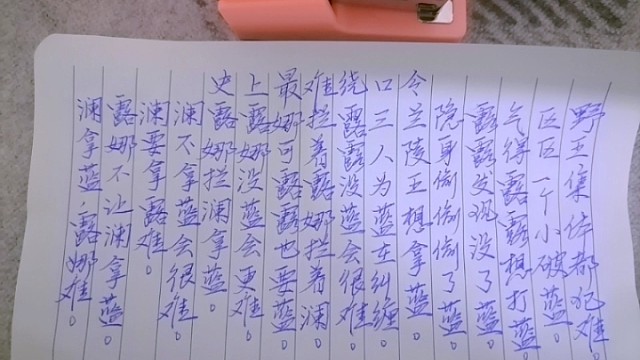 史上最难绕口令
澜拿蓝,露娜难。
露娜不让澜拿蓝。
澜要拿露难。
澜不拿蓝会很难。
露娜拦澜拿蓝。
露娜没蓝会更难。
娜可露露也要蓝。
拦着露娜拦着澜
露露没蓝会很难。
三人为蓝在纠缠
兰陵王想拿蓝。
隐身偷偷偷了蓝。
露露发现没了蓝。
气得露露想打蓝
区区一个小破蓝。
野王集体都犯难